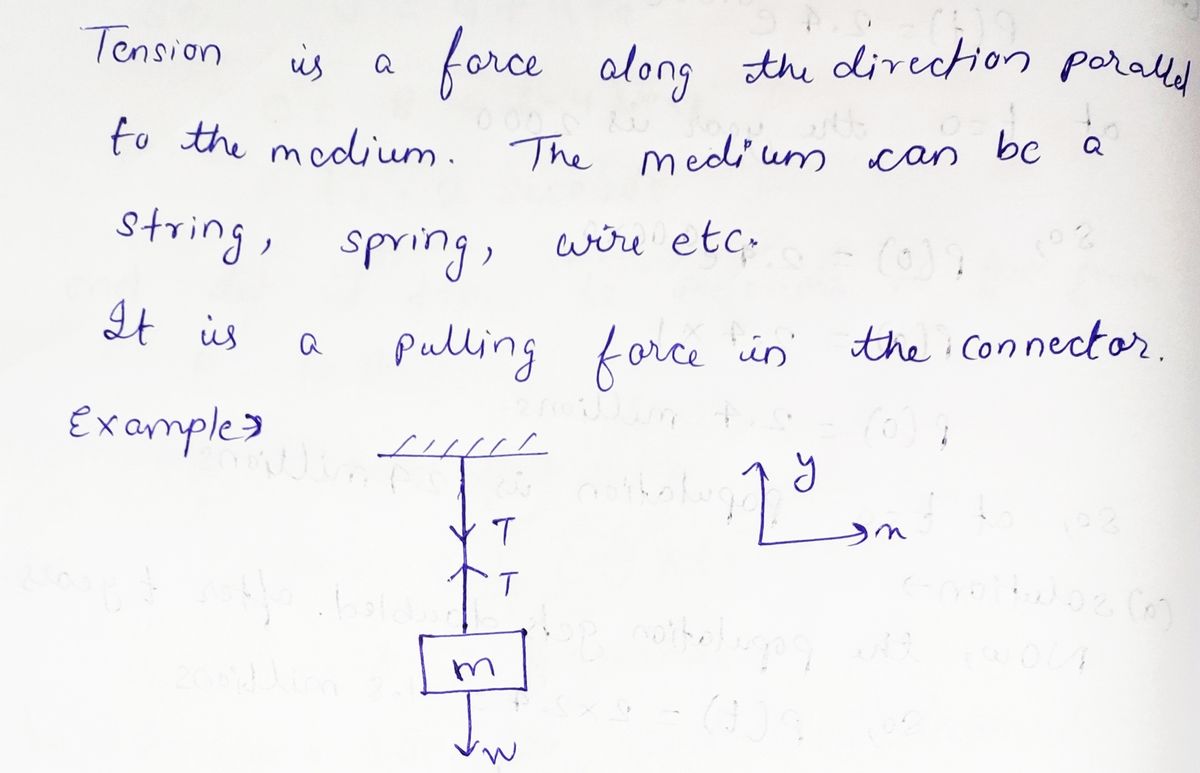 Tension is a force along the direction parallel
to the medium. The medium can be a
string, spring, wire etc.
It is a pulling force in the connector.
Example→
y
x
T
T
m
W